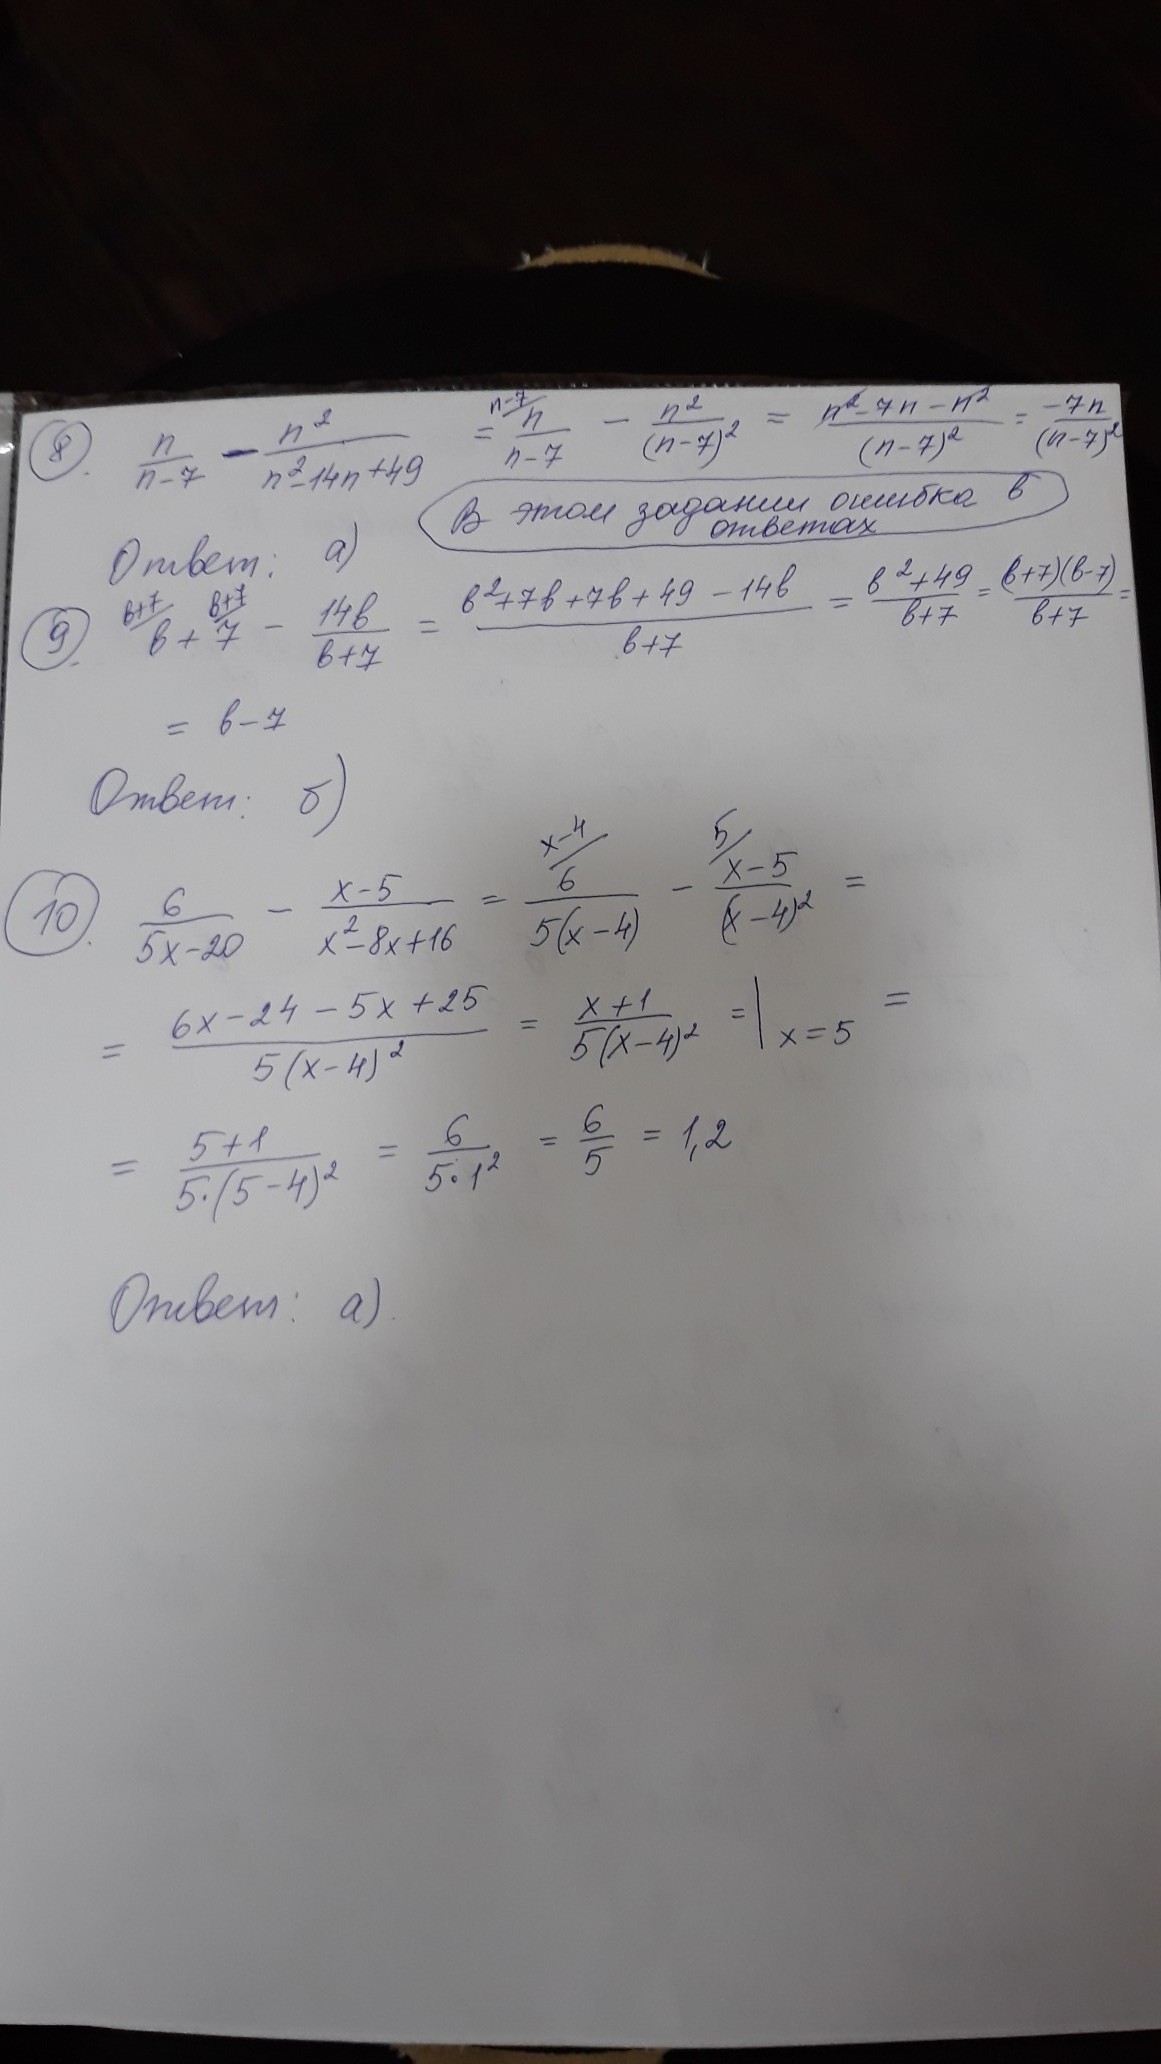 8. n/(n-7) - n²/(n²-14n+49) = n-7/ n/(n-7) - n²/(n-7)² = (n²-7n-n²)/(n-7)² = -7n/(n-7)²
В этом задании ошибка в
ответах
Ответ: а)
9. b+7/ b + b+7/ 7 - 14b/(b+7) = (b²+7b+7b+49-14b)/(b+7) = (b²+49)/(b+7) = (b+7)(b-7)/(b+7) =
= b-7
Ответ: б)
10. 6/(5x-20) - (x-5)/(x²-8x+16) = x-4/ 6/(5(x-4)) - 5/ (x-5)/(x-4)² =
= (6x-24-5x+25)/(5(x-4)²) = (x+1)/(5(x-4)²) = | x=5 =
= (5+1)/(5·(5-4)²) = 6/(5·1²) = 6/5 = 1,2
Ответ: а).